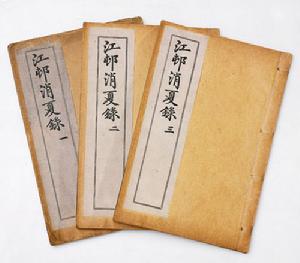 江邨消夏錄 一
江邨消夏錄 二
江邨消夏錄 三